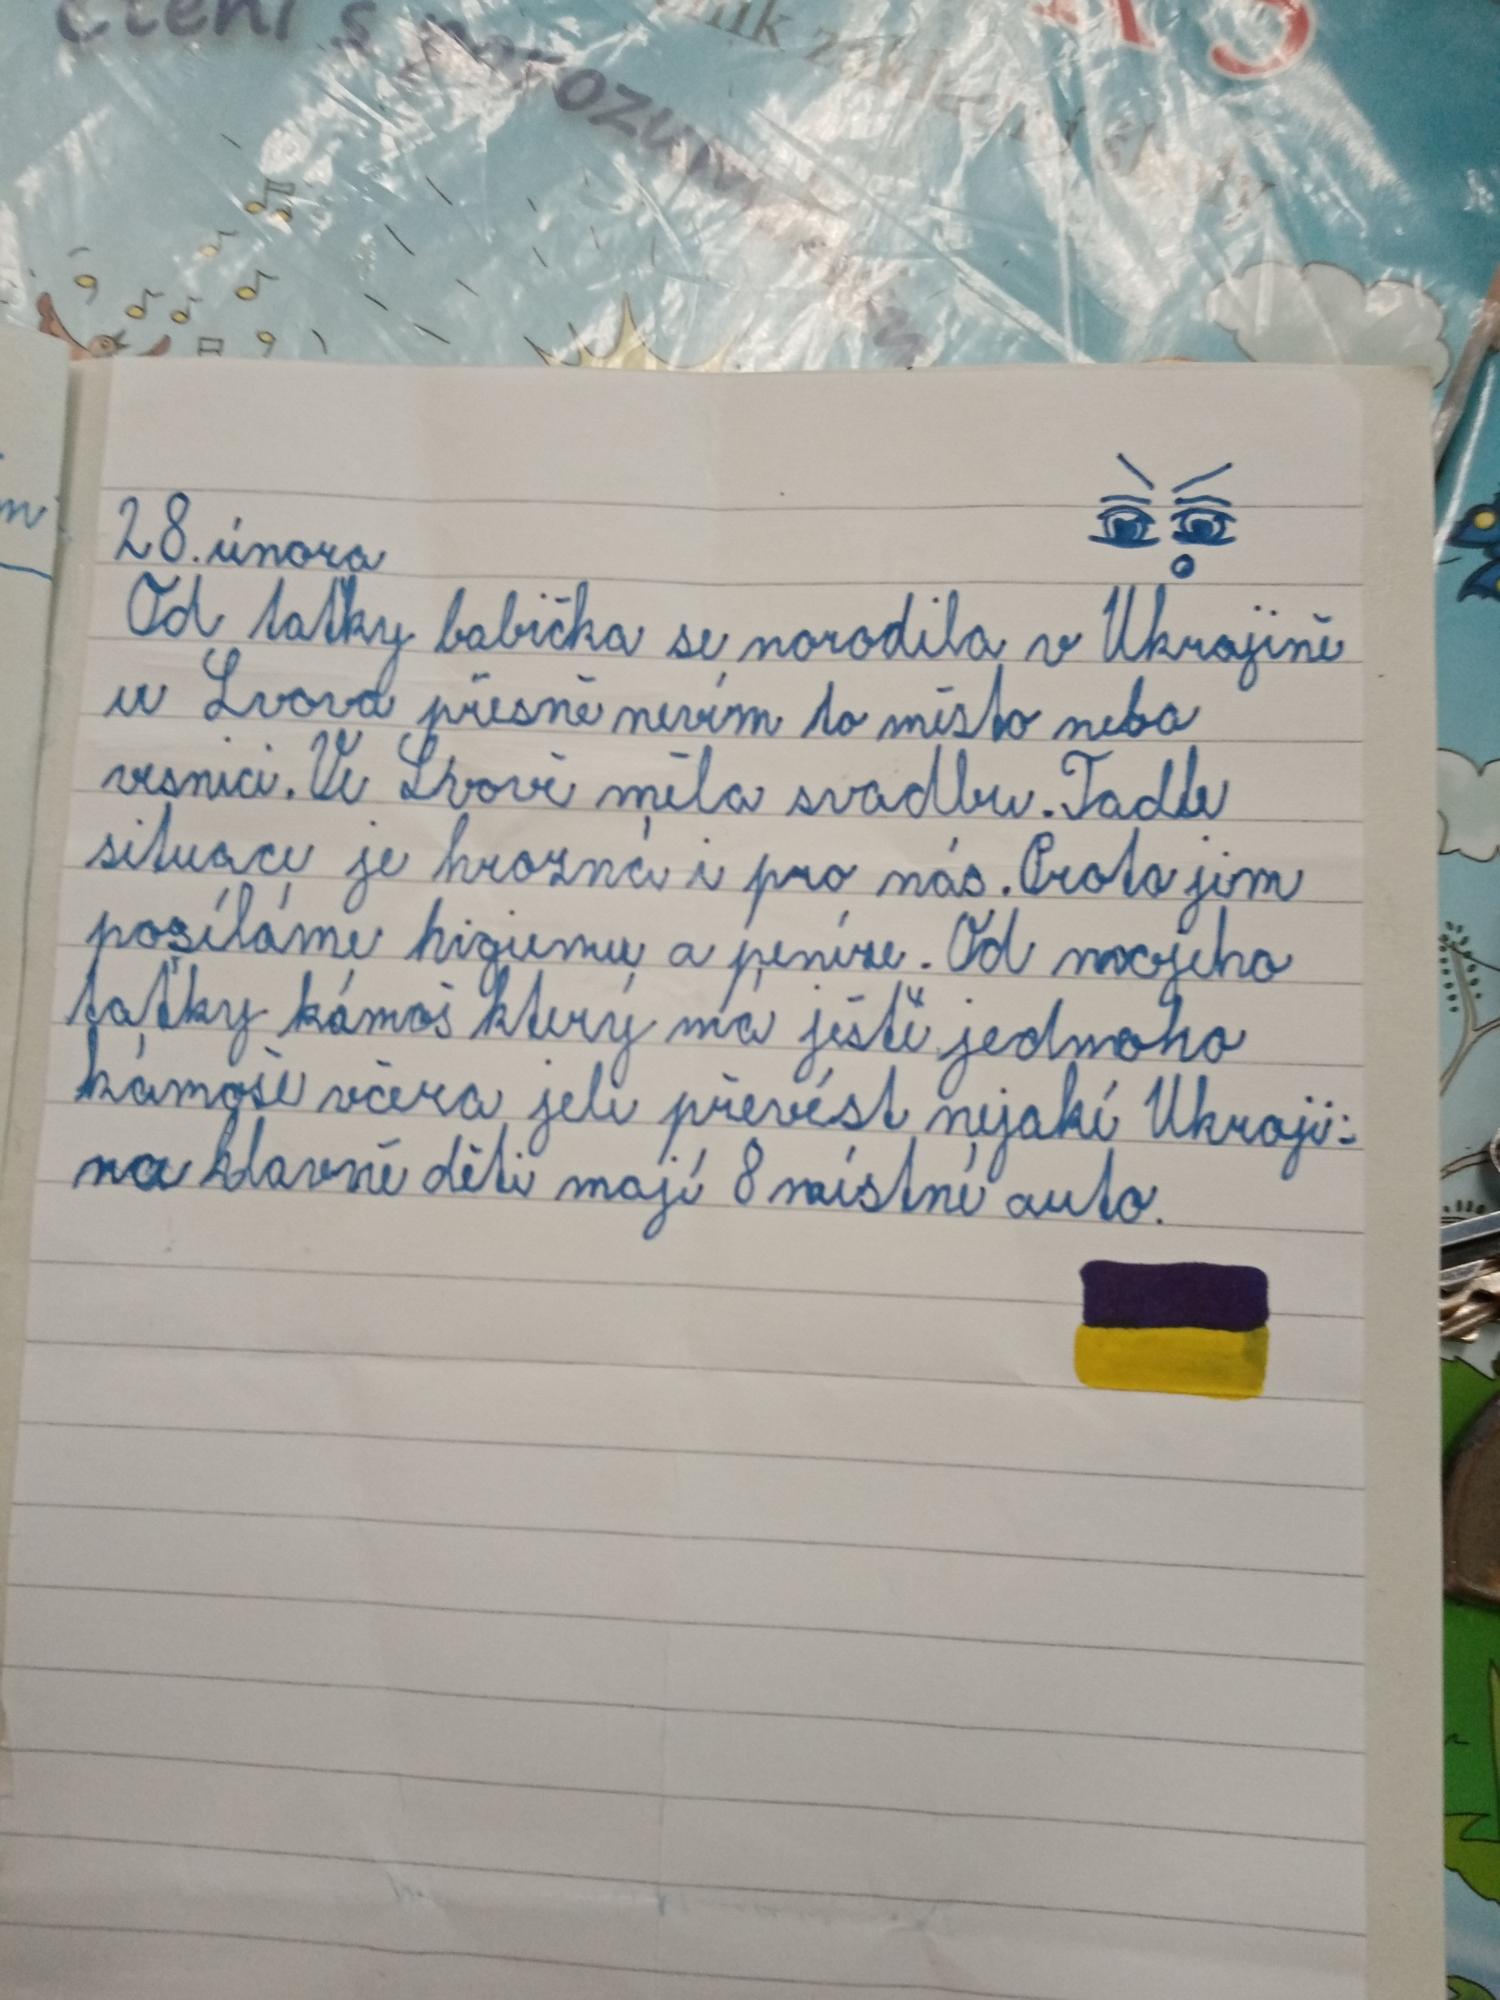 čtení s porozuměním
28. února
Od taťky babička se norodila v Ukrajině
u Lvova přesně nevím to místo neba
vesnici. Ve Lvově měla svadbu. Tadle
situace je hrozná i pro nás. Proto jim
posíláme higienu a peníze. Od mojeho
taťky kámoš který má ještě jednoho
kámoše včera jeli převést nejaké Ukraji:
na hlavně děti mají 8 místné auto.